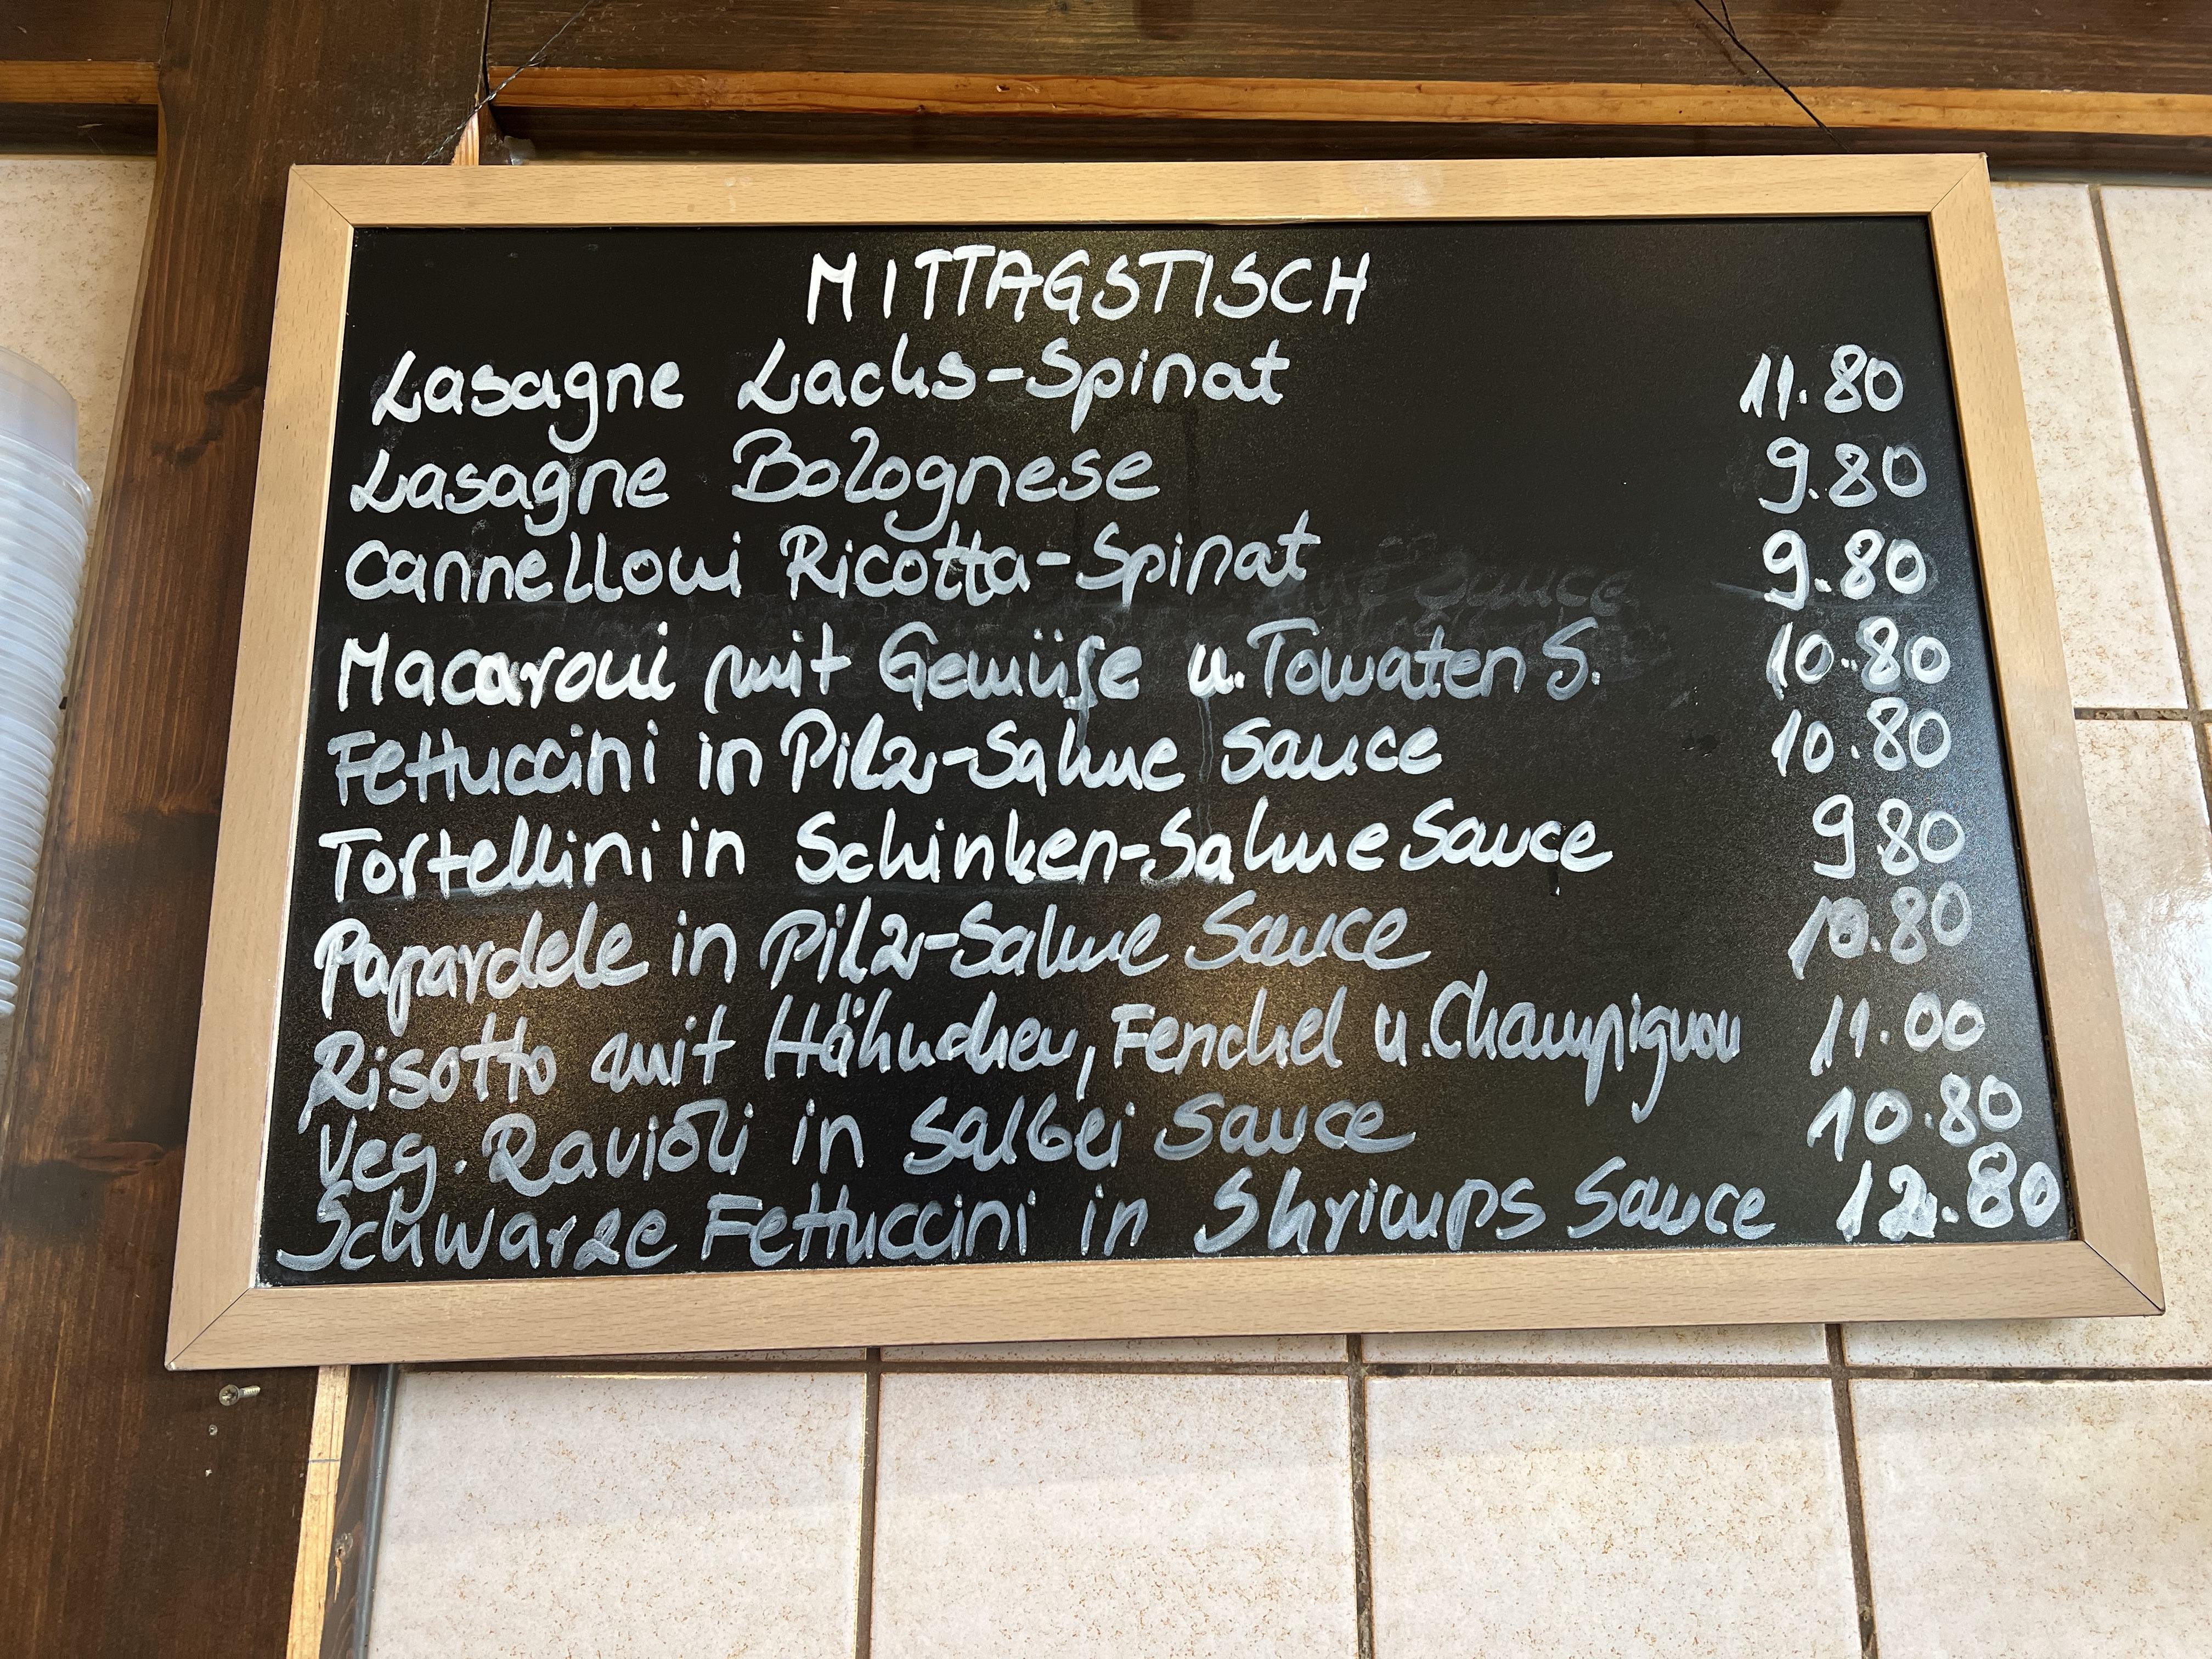 MITTAGSTISCH
Lasagne Lachs-Spinat 11.80
Lasagne Bolognese 9.80
Cannelloni Ricotta-Spinat 9.80
Macaroni mit Gemüse u. Tomaten S. 10.80
Fettuccini in Pilz-Sahne Sauce 10.80
Tortellini in Schinken-Sahne Sauce 9 80
Papardele in Pilz-Sahne Sauce 10.80
Risotto mit Hähnchen, Fenchel u. Champignon 11.00
Veg. Ravioli in Salbei Sauce 10.80
Schwarze Fettuccini in Shrimps Sauce 12.80